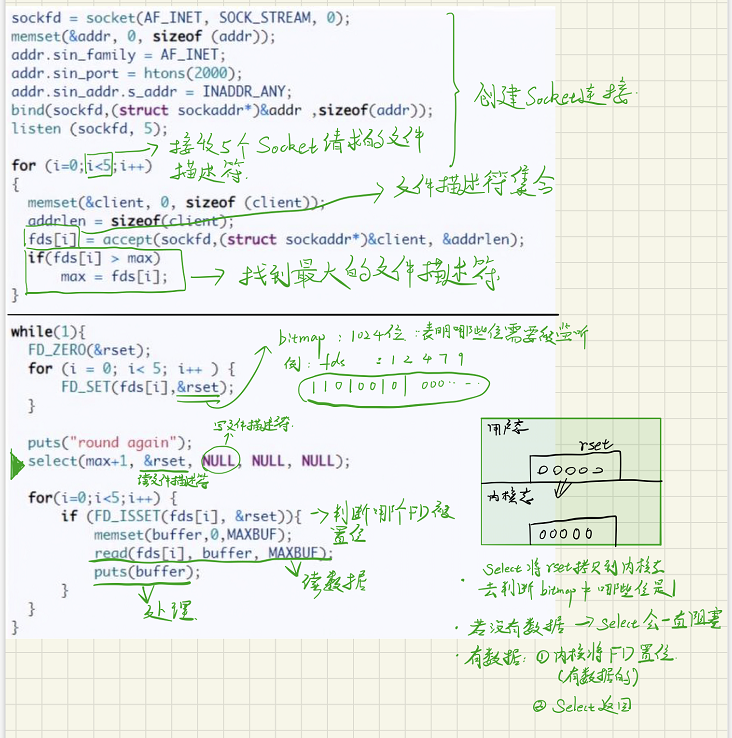 sockfd = socket(AF_INET, SOCK_STREAM, 0);
memset(&addr, 0, sizeof (addr));
addr.sin_family = AF_INET;
addr.sin_port = htons(2000);
addr.sin_addr.s_addr = INADDR_ANY;
bind(sockfd,(struct sockaddr*)&addr ,sizeof(addr));
listen (sockfd, 5);
创建Socket连接
for (i=0;i<5;i++)
→ 接收5个Socket请求的文件
描述符.
{
memset(&client, 0, sizeof (client));
→ 文件描述符集合
addrlen = sizeof(client);
fds[i] = accept(sockfd,(struct sockaddr*)&client, &addrlen);
if(fds[i] > max)
max = fds[i];
→ 找到最大的文件描述符
}
while(1){
FD_ZERO(&rset);
for (i = 0; i< 5; i++ ) {
FD_SET(fds[i],&rset);
}
bitmap : 1024位 :表明哪些位需要被监听
例: fds : 1 2 4 7 9
110100101 000...
puts("round again");
写文件描述符
select(max+1, &rset, NULL, NULL, NULL);
读文件描述符
for(i=0;i<5;i++) {
if (FD_ISSET(fds[i], &rset)){
→判断哪个FD被
置位
memset(buffer,0,MAXBUF);
read(fds[i], buffer, MAXBUF);
读数据
puts(buffer);
处理.
}
}
}
用户态
rset
00000
内核态
00000
Select将rset拷贝到内核态
去判断bitmap 哪些位是1
· 若没有数据 → Select会一直阻塞
· 有数据: ① 内核将FD置位.
(有数据的)
② Select返回